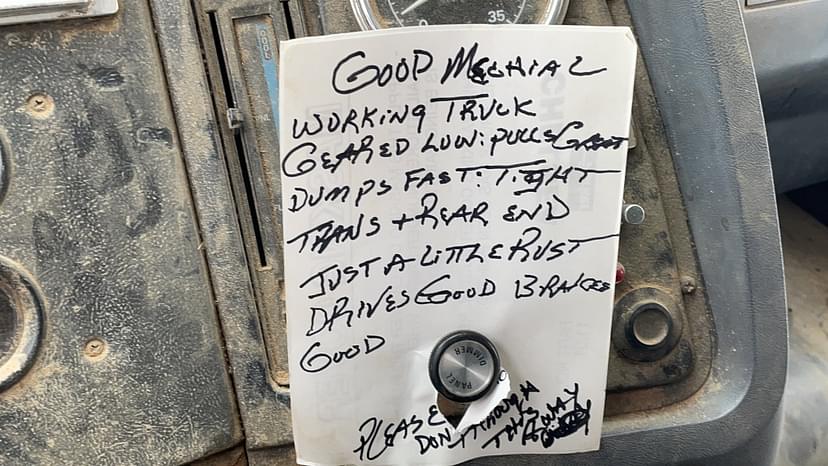 35
GOOD MECHIAL
WORKING TRUCK
GEARED LOW: PULLS GREAT
DUMPS FAST: TIGHT
TRANS + REAR END
JUST A LITTLE RUST
DRIVES GOOD BRAKES
GOOD
PANEL DIMMER
PLEASE
DON'T
THIS AWAY